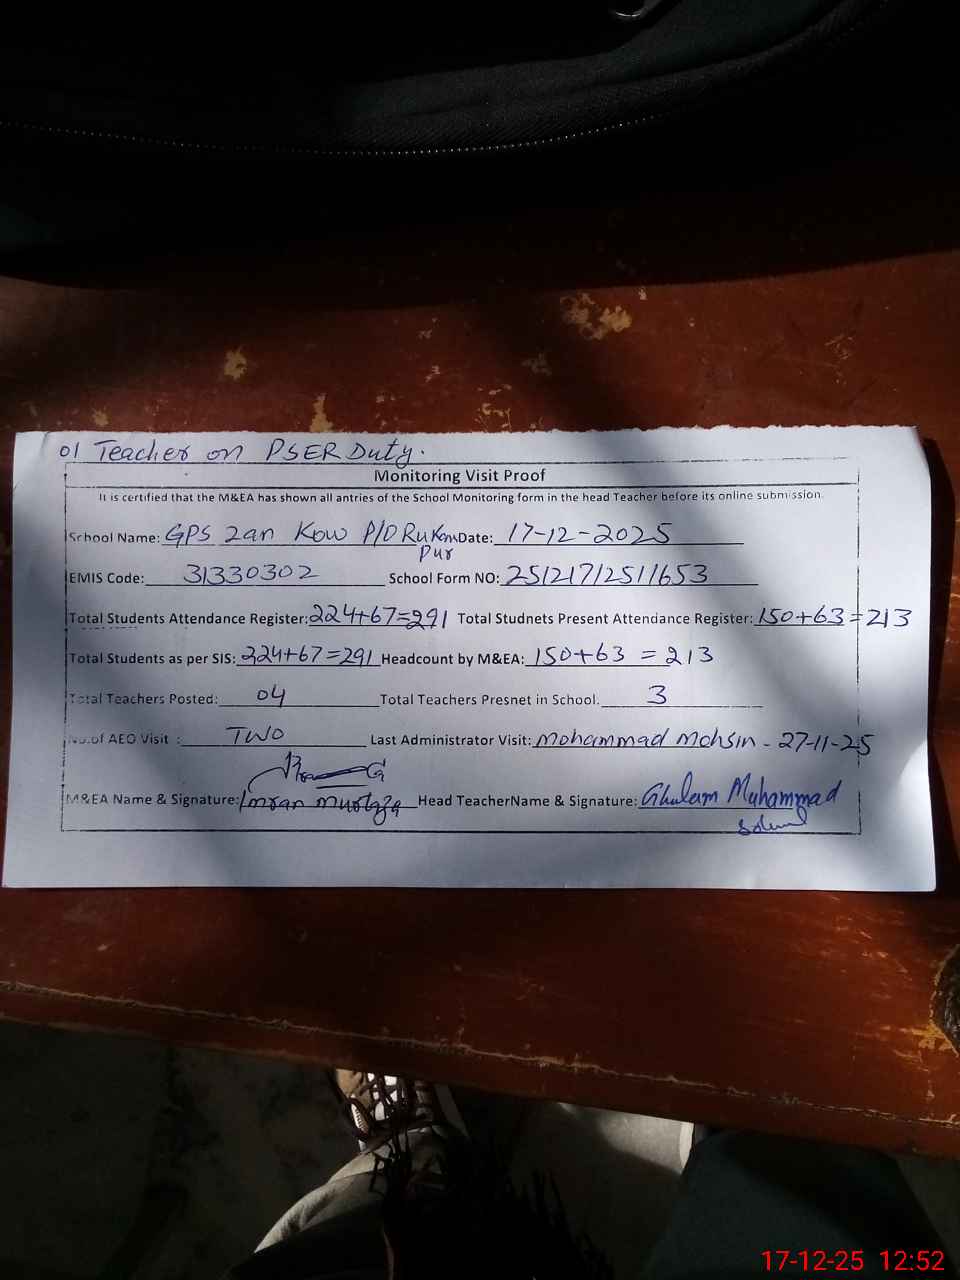 01 Teacher on PSER Duty.
Monitoring Visit Proof
It is certified that the M&EA has shown all antries of the School Monitoring form in the head Teacher before its online submission.
School Name: GPS Zan Kow P/O Rukan Date: 17-12-2025
Pur
EMIS Code: 31330302 School Form NO: 25121712511653
Total Students Attendance Register: 224+67=291 Total Studnets Present Attendance Register: 150+63=213
Total Students as per SIS: 224+67=291 Headcount by M&EA: 150+63 = 213
Total Teachers Posted: 04 Total Teachers Presnet in School. 3
No.of AEO Visit : TWO Last Administrator Visit: Mohammad Mohsin - 27-11-25
M&EA Name & Signature: Imran Murtaza Head TeacherName & Signature: Ghulam Muhammad
17-12-25 12:52